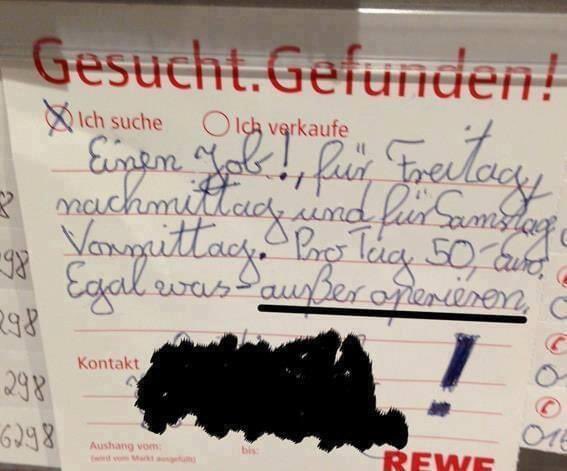 Gesucht. Gefunden!
Ich suche Ich verkaufe
Einen Job!, für Freitag,
nachmittag, und für Samstag
Vormittag. Pro Tag 50,- Euro.
Egal was - außer operieren.
!
Kontakt
Aushang vom: bis:
(wird vom Markt ausgefüllt)
REWE
8
98
298
298
6298